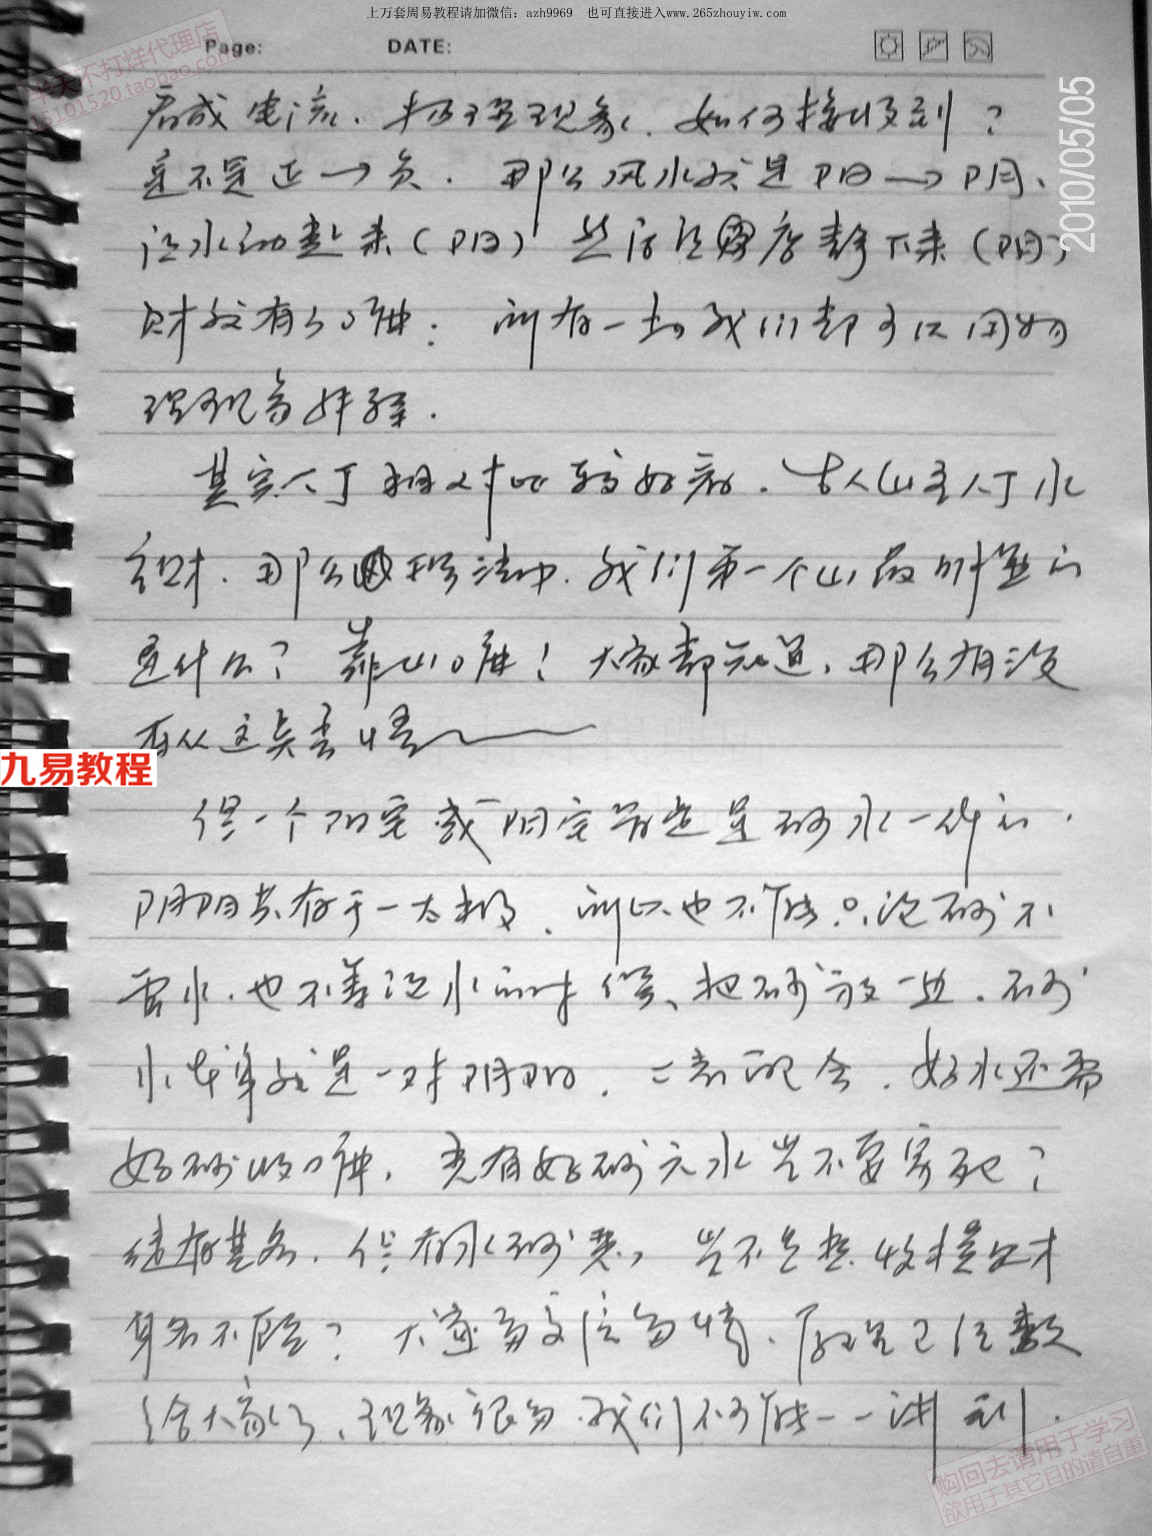 上万套周易教程请加微信：azh9969 也可直接进入www.265zhouyiw.com
不打烊代理店
101520.taobao.com
Page: DATE:
2010/05/05
看成电流、物理现象、如何接收到？
是不是正→负．那么风水就是阳→阴、
让水动起来（阳）然后让它静下来（阴）
财就有了嘛．所有一切我们都可以用物
理现象解释．
其实人丁相对比较好办．古人山主人丁水
主财．那么理法中．我们第一个山最明显的
是什么？靠山嘛！大家都知道．那么有没
有从这点去悟
九易教程
但一个阳宅或阴宅肯定是砂水一体的．
阴阳共存于一太极．所以也不能只论砂不
看水．也不要论水的时候、把砂放一边．砂
水本身就是一对阴阳．二者配合．好水还需
好砂收嘛．光有好砂无水岂不要穷死？
但有水砂恶，岂不是
大道
给大家了、现象很多．我们不可能一一讲到．
购回去请用于学习
欲用于其它目的请自重